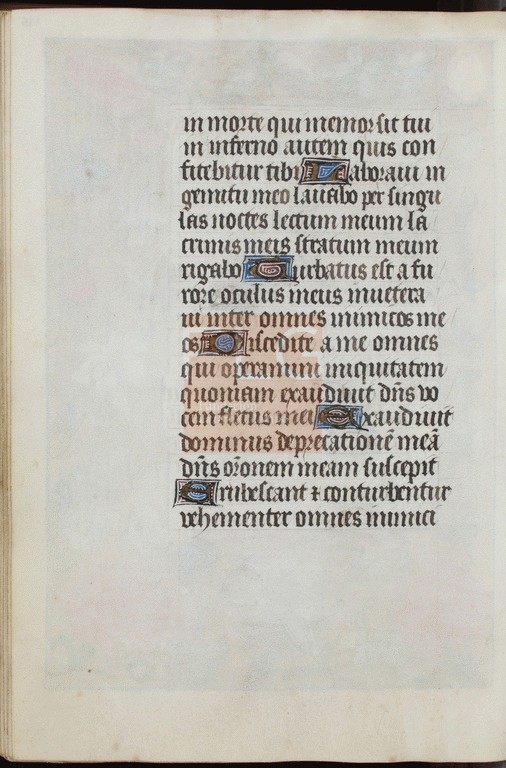 in morte qui memor sit tui
in inferno autem quis con
fitebitur tibi Laboraui in
gemitu meo lauabo per singu
las noctes lectum meum la
crimis meis stratum meum
rigabo Turbatus est a fu
rore oculus meus inuetera
ui inter omnes inimicos me
os Discedite a me omnes
qui operamini iniquitatem
quoniam exaudiuit dn̄s vo
cem fletus mei Exaudiuit
dominus deprecationē meā
dn̄s or̄onem meam suscepit
Erubescant ⁊ conturbentur
vehementer omnes inimici